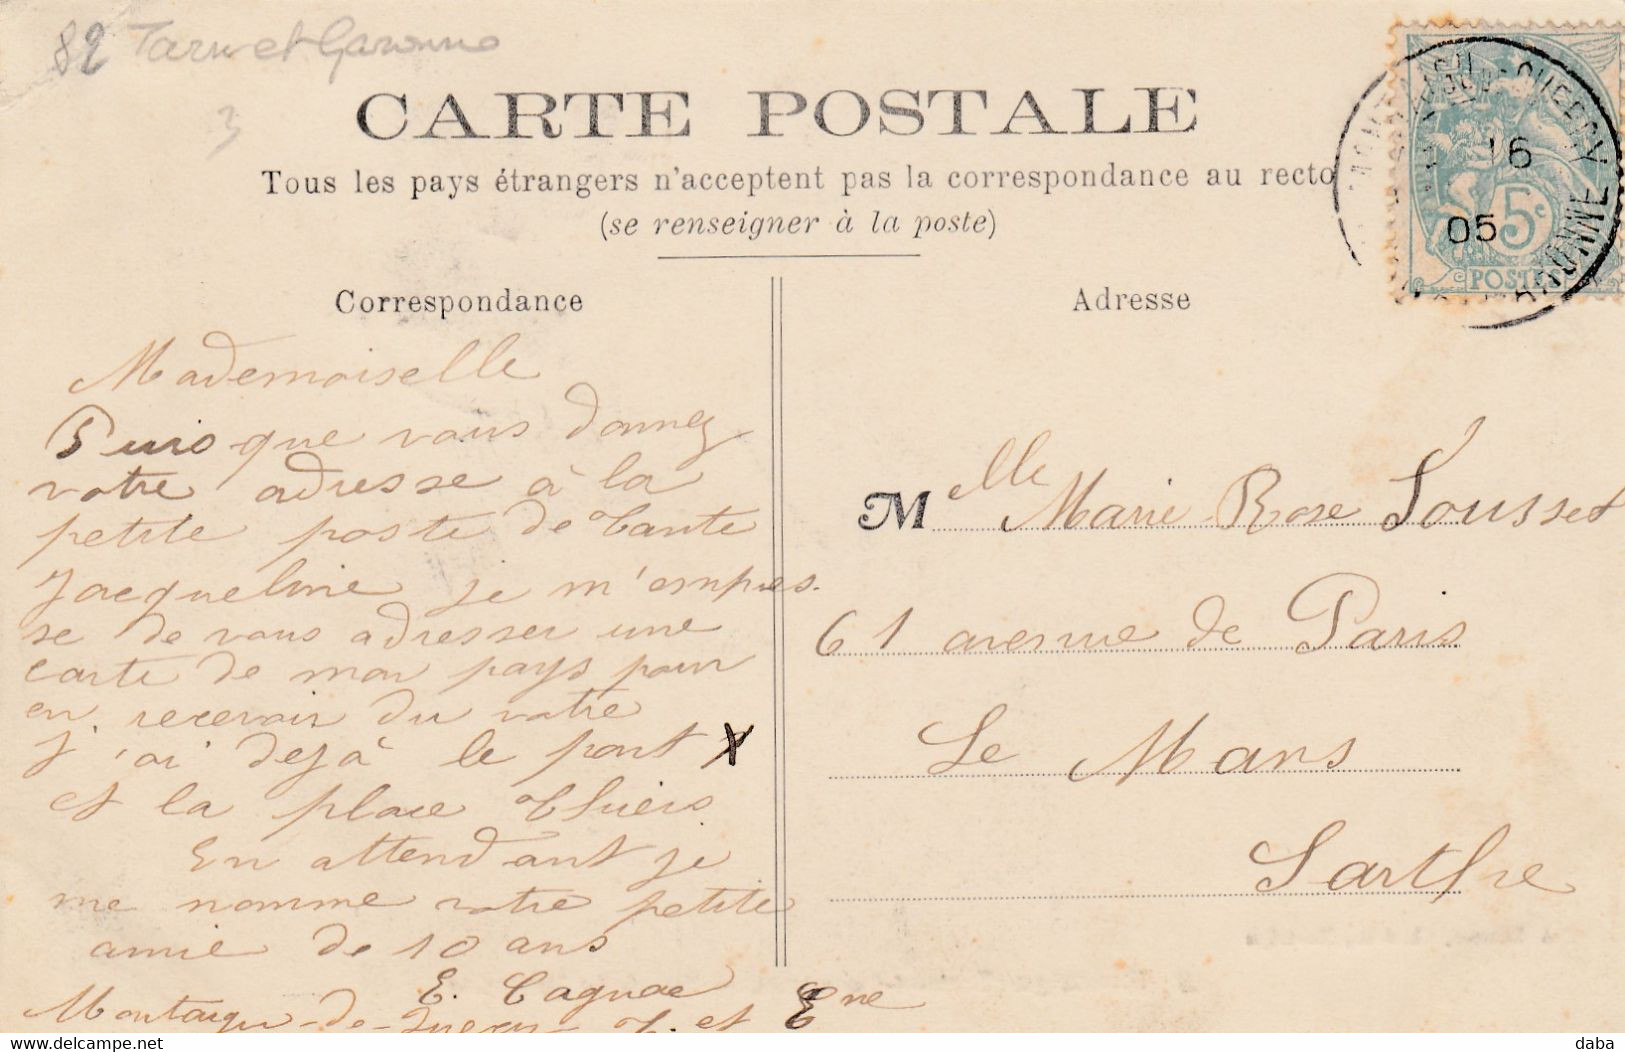 82 Tarn et Garonne
3
CARTE POSTALE
Tous les pays étrangers n'acceptent pas la correspondance au recto
(se renseigner à la poste)
16
05
5c
POSTES
Correspondance
Mademoiselle
Puis que vous donnez
votre adresse à la
petite poste de Tante
Jacqueline je m'empres-
se de vous adresser une
carte de mon pays pour
en recevoir du votre
j'ai dejà le pont X
et la place Thiers
En attendant je
me nomme votre petite
amie de 10 ans
E. Cagnac
Montaigu-de-Quercy T. et Gne
Adresse
Mlle Marie Rose Lousset
61 avenue de Paris
Le Mans
Sarthe
www.delcampe.net
daba